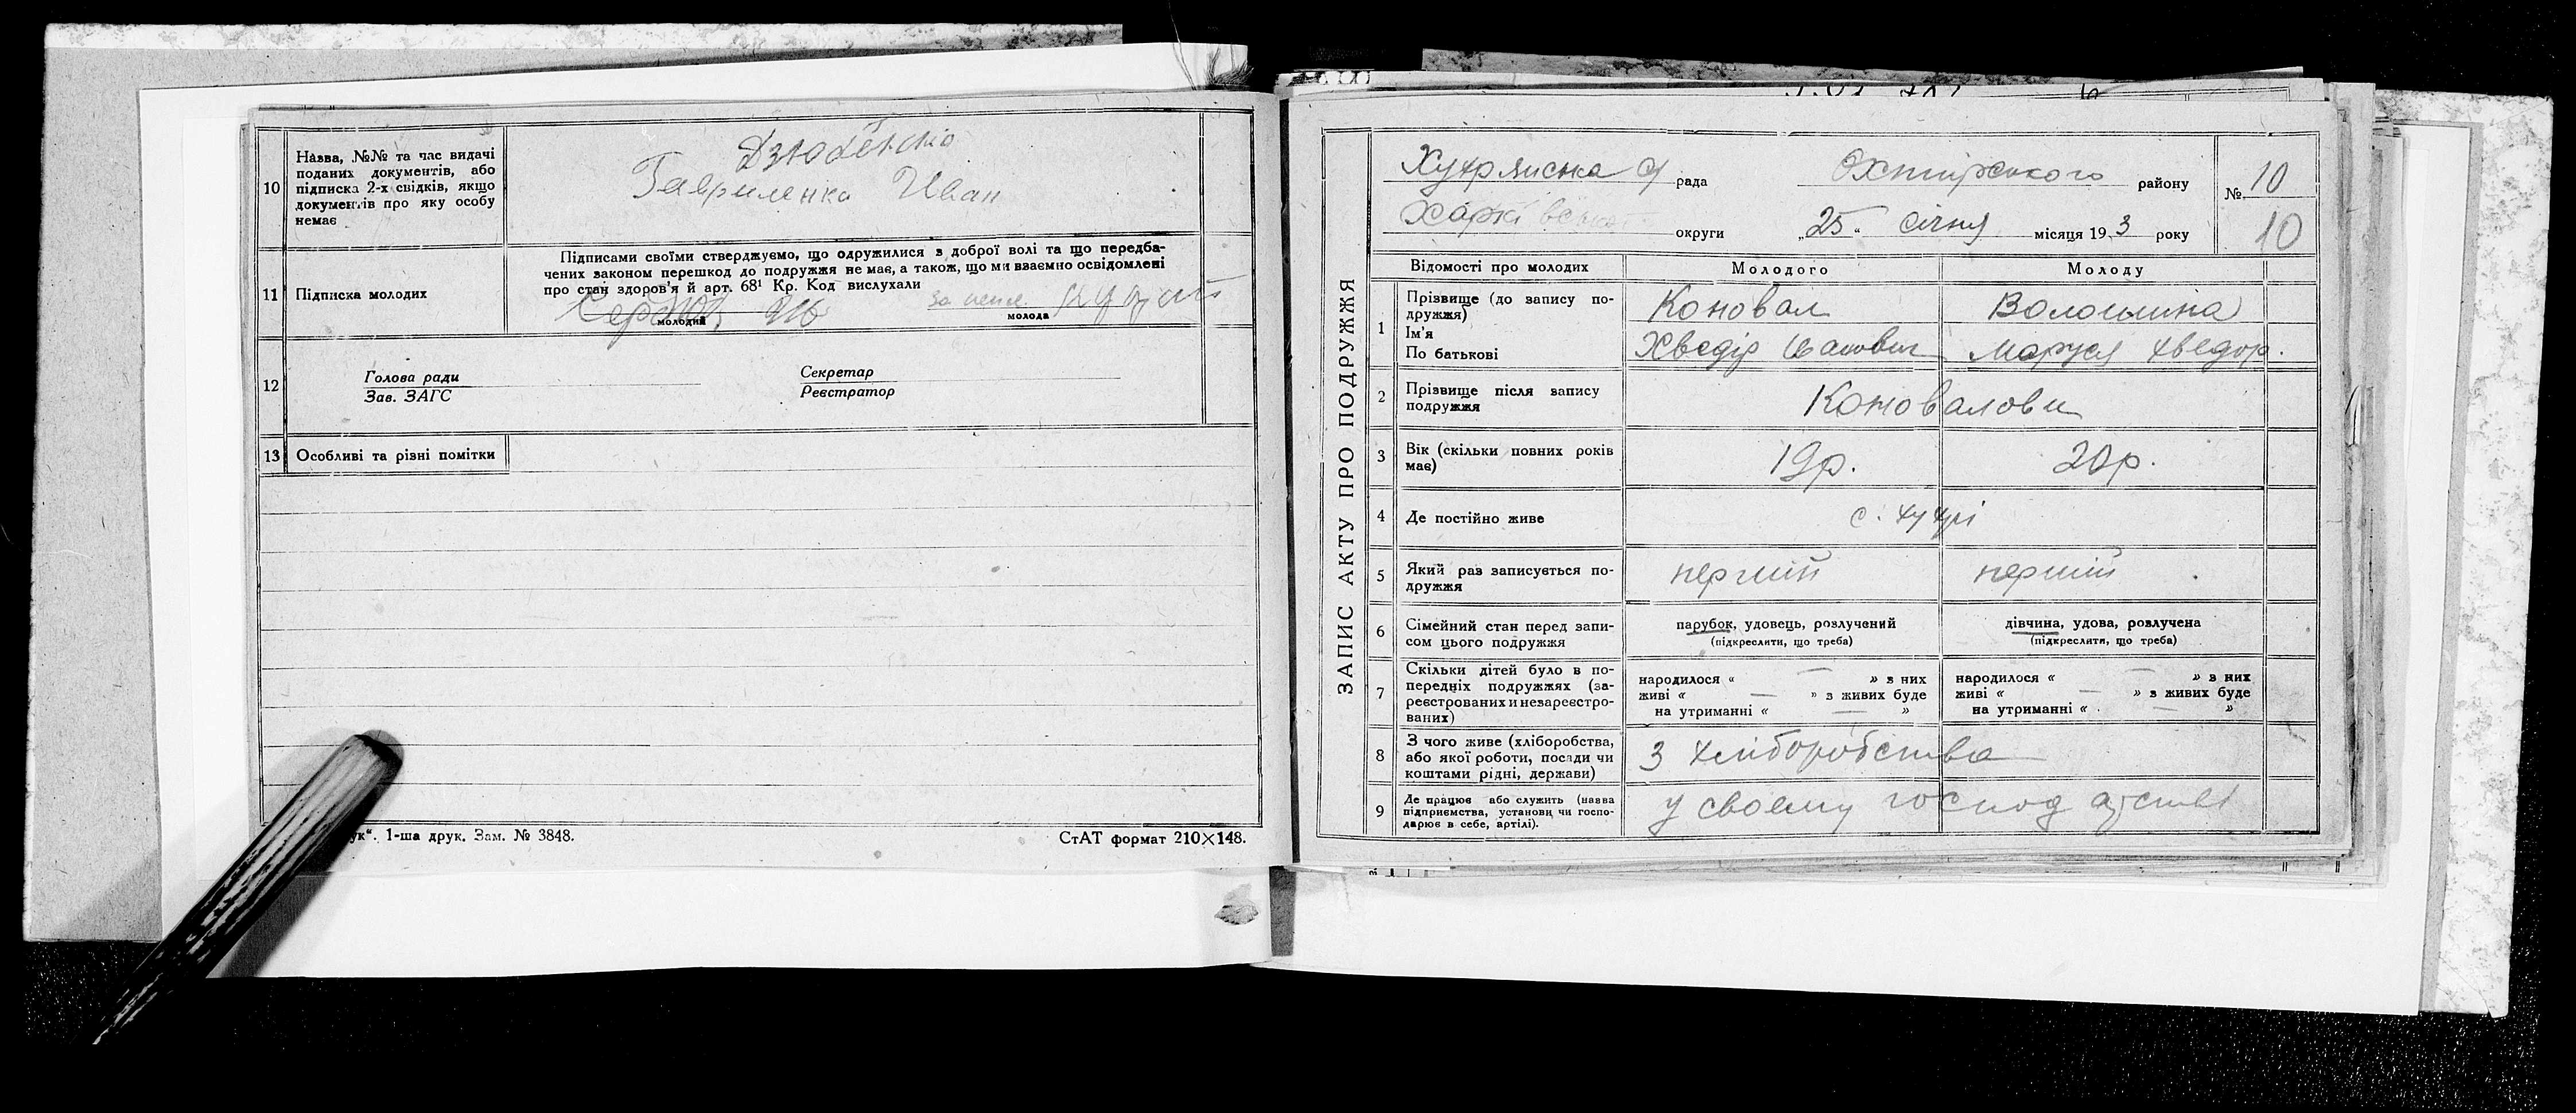 10
Назва, №№ та час видачі
поданих документів, або
підписка 2-х свідків, якщо
документів про яку особу
немає
Дзюбенко
Гавриленко Иван
11
Підписка молодих
Підписами своїми стверджуємо, що одружилися з доброї волі та що передба-
чених законом перешкод до подружжя не має, а також, що ми взаємно освідомлені
про стан здоров'я й арт. 68¹ Кр. Код вислухали
молодий
молода
12
Голова ради
Зав. ЗАГС
Секретар
Реєстратор
13
Особливі та різні помітки
ук“. 1-ша друк. Зам. № 3848.
СтАТ формат 210×148.
ЗАПИС АКТУ ПРО ПОДРУЖЖЯ
рада
Охтирського району
№ 10
округи
„25“ січня місяця 19 3 року
10
Відомості про молодих
Молодого
Молоду
1
Прізвище (до запису по-
дружжя)
Ім'я
По батькові
Коновал
Хведір Іванович
Волошина
Маруся Хведор.
2
Прізвище після запису
подружжя
Коновалови
3
Вік (скільки повних років
має)
19р.
20р.
4
Де постійно живе
с. Хухрі
5
Який раз записується по-
дружжя
перший
перший
6
Сімейний стан перед запи-
сом цього подружжя
парубок, удовець, розлучений
(підкреслити, що треба)
дівчина, удова, розлучена
(підкреслити, що треба)
7
Скільки дітей було в по-
передніх подружжях (за-
реєстрованих и незареєстро-
ваних)
народилося « — » з них
живі « — » з живих буде
на утриманні « — »
народилося « — » з них
живі « — » з живих буде
на утриманні « — »
8
З чого живе (хліборобства,
або якої роботи, посади чи
коштами рідні, держави)
З хліборобства
9
Де працює або служить (назва
підприємства, установи чи госпо-
дарює в себе, артілі).
у своєму господарстві